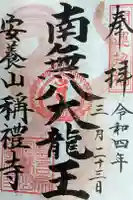 奉拝
令和四年
三月二十三日
南無八大龍王
安養山稱禮寺